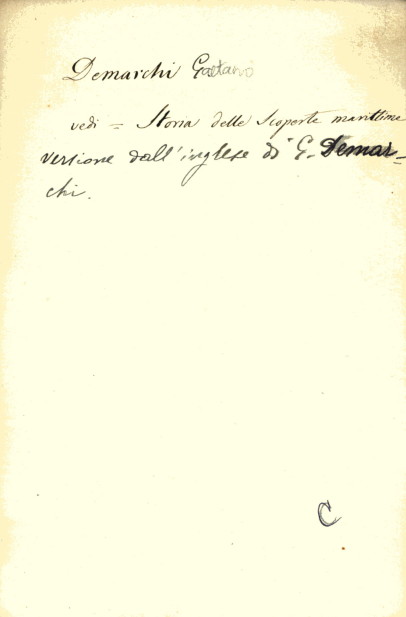 Demarchi Gaetano
vedi = Storia delle Scoperte marittime
versione dall'inglese di G. Demar-
chi.
C